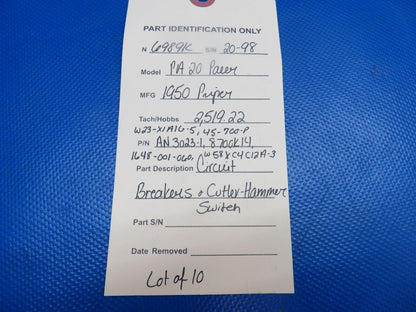 PART IDENTIFICATION ONLY
N 6989K S/N 20-98
Model PA 20 Pacer
MFG 1950 Piper
Tach/Hobbs 2,519.22
W23-X1A1G-5, 45-700-P
P/N AN3023-1, 8700K14,
1648-001-060, W58XC4C12A-3
Part Description Circuit
Breakers & Cutler-Hammer
Switch
Part S/N
Date Removed
Lot of 10